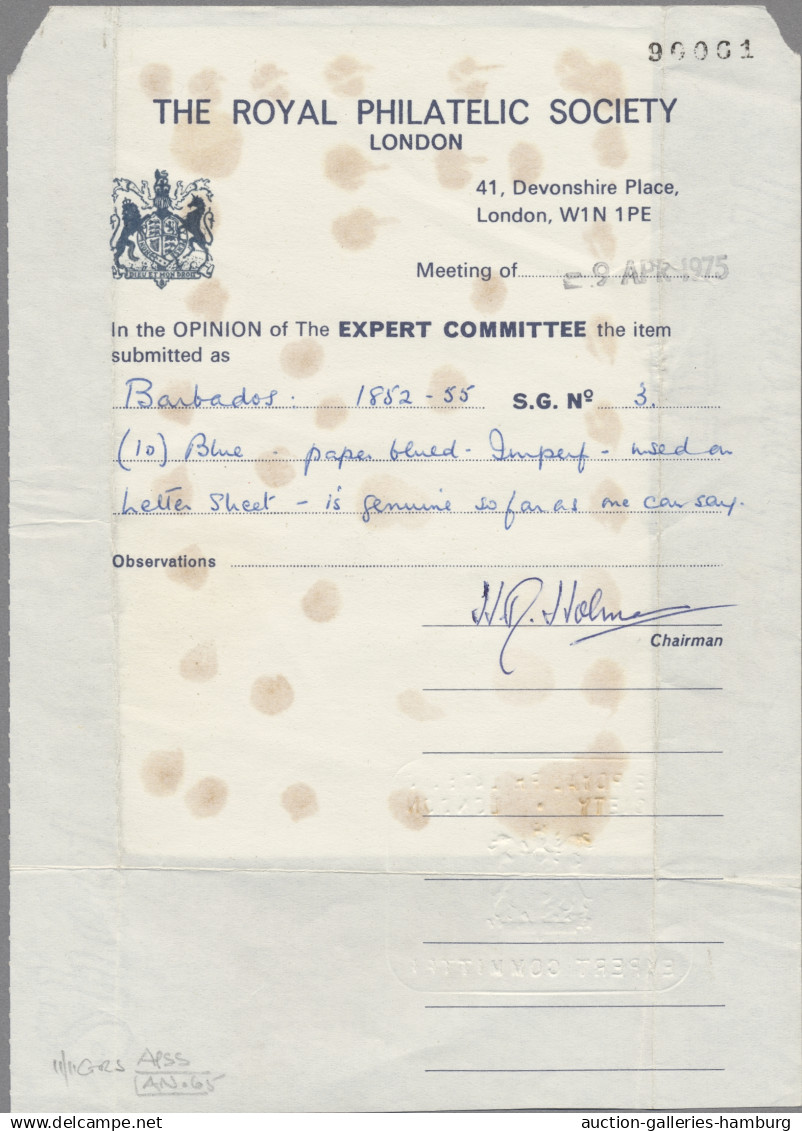 90001
THE ROYAL PHILATELIC SOCIETY
LONDON
41, Devonshire Place,
London, W1N 1PE
Meeting of 9 APR 1975
In the OPINION of The EXPERT COMMITTEE the item
submitted as
Barbados. 1852-55 S.G. Nº 3.
(1D) Blue - paper blued - Imperf - used on
Letter Sheet - is genuine so far as one can say.
Observations
H.R. Holman
Chairman
EXPERT COMMITTEE
AN.65
auction-galleries-hamburg